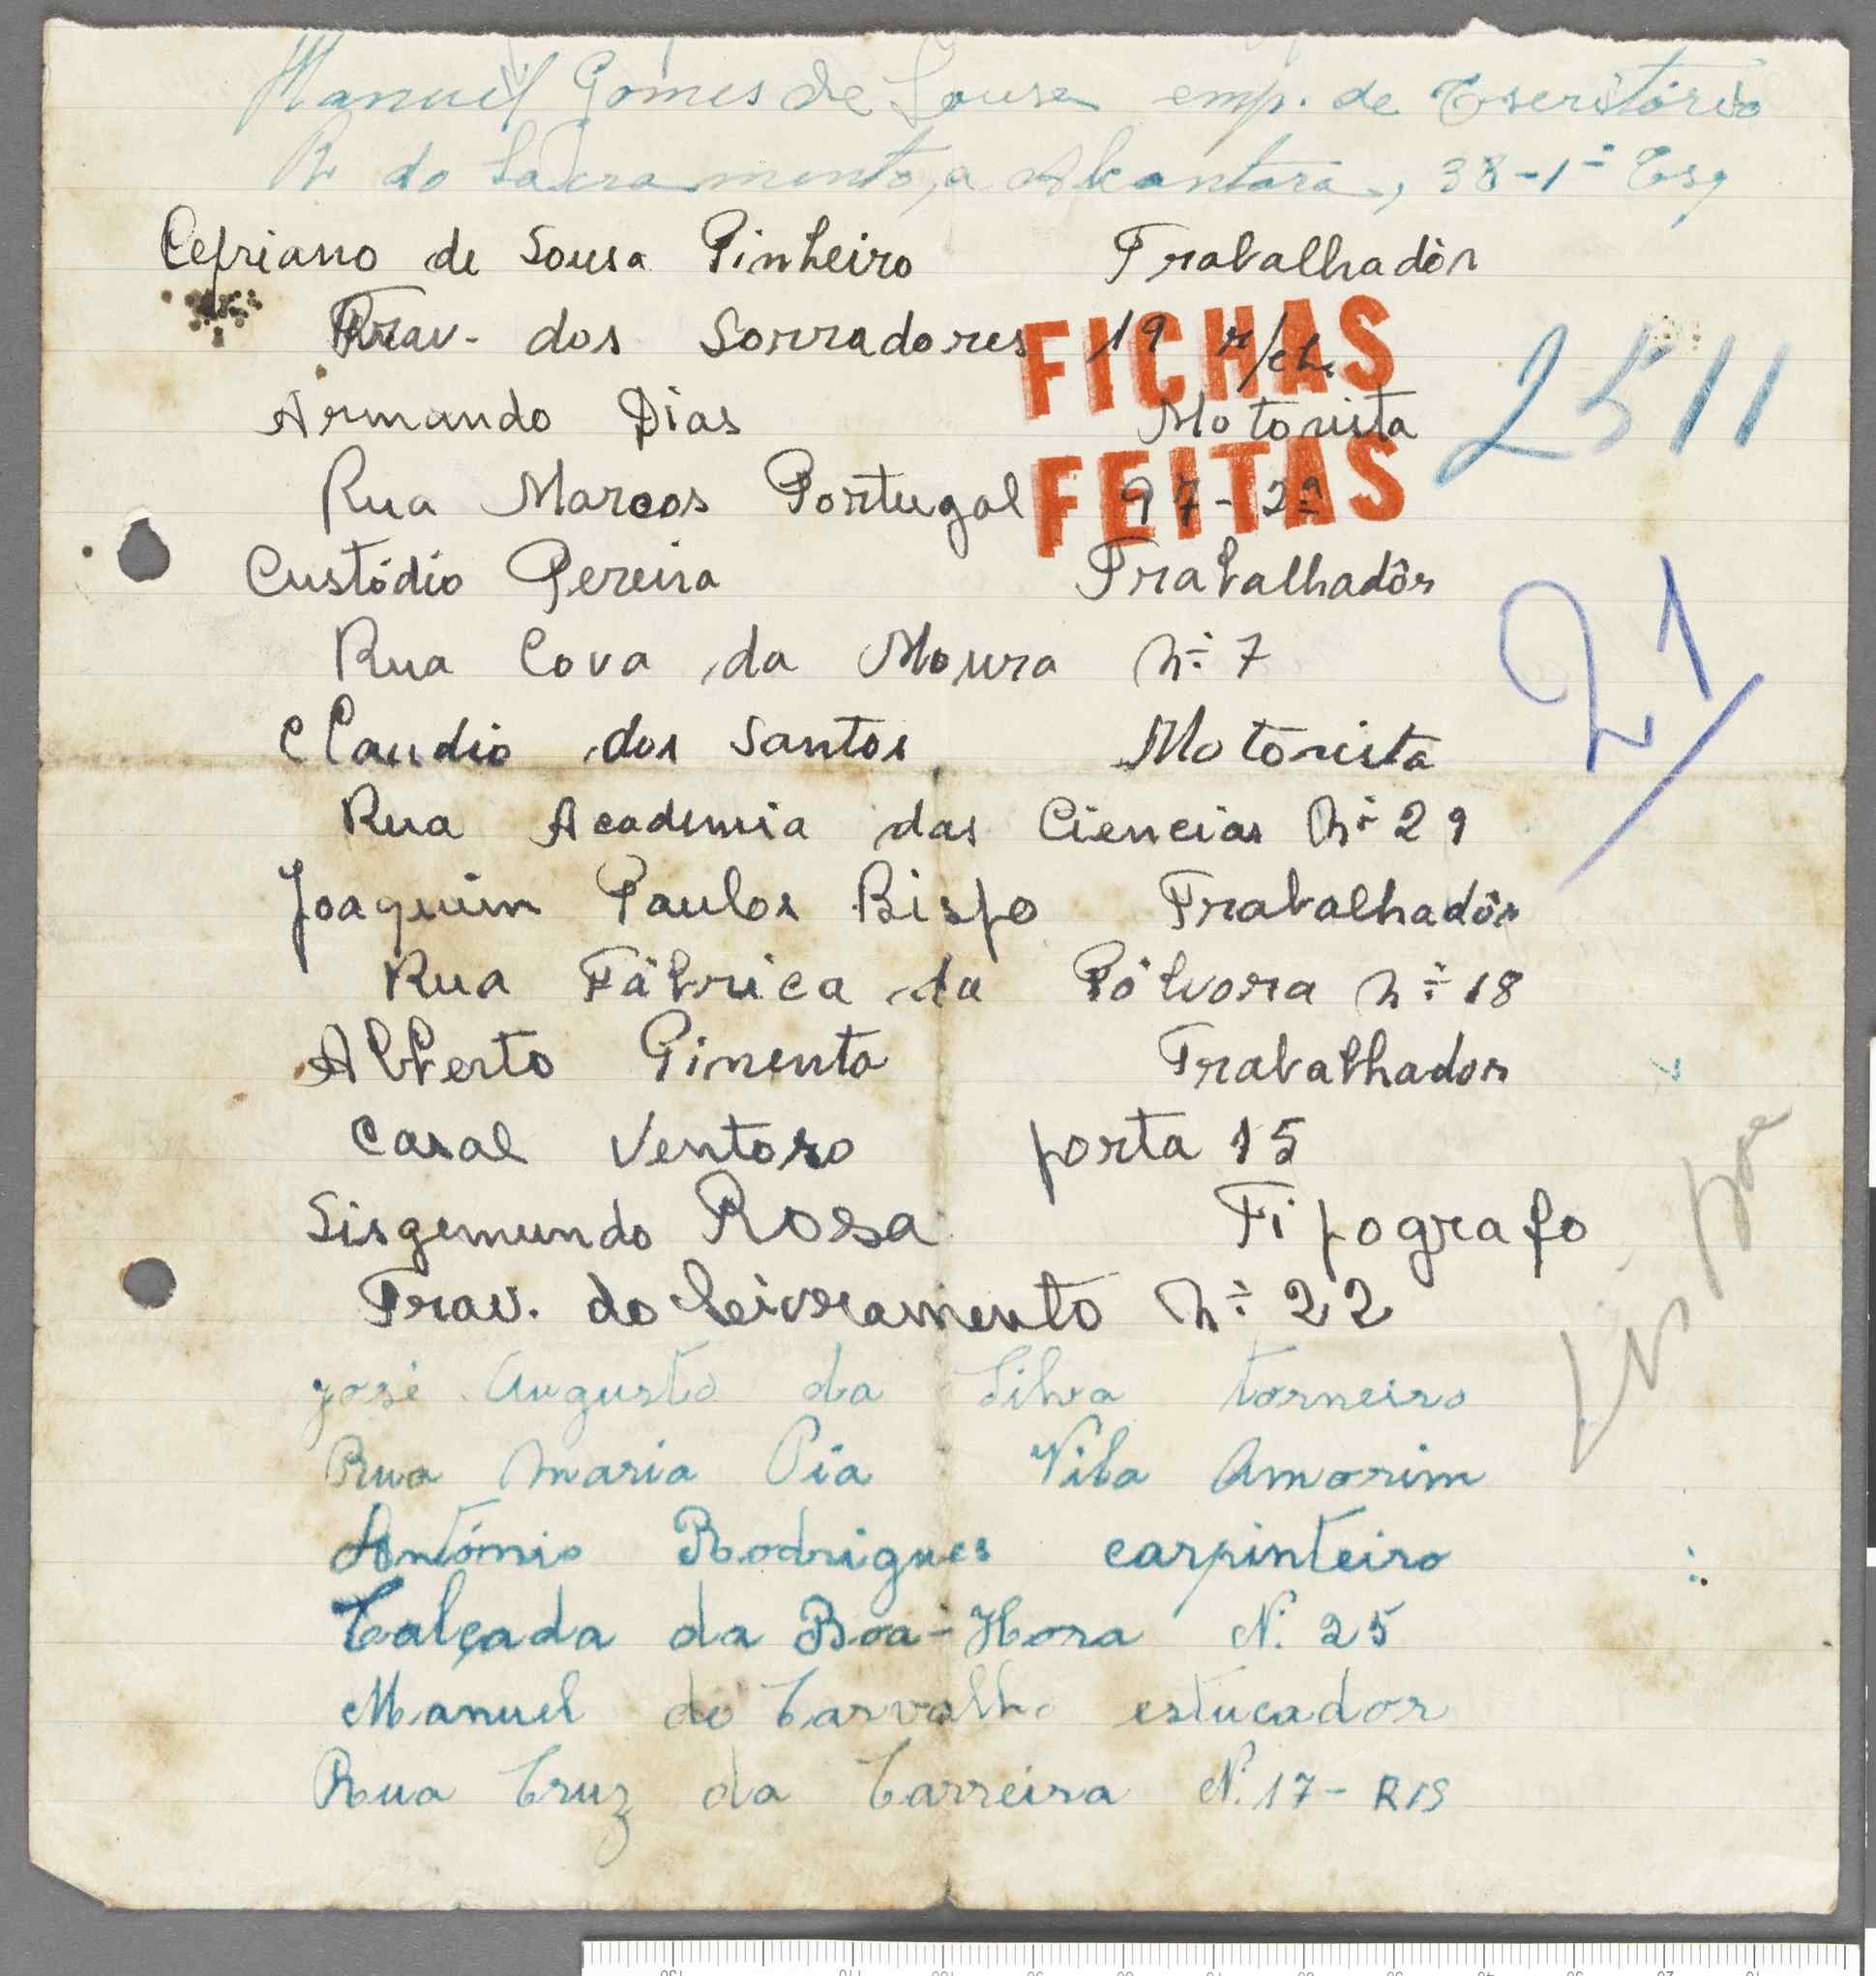 Manuel Gomes de Sousa emp. de Escritório
R do Sacramento, a Alcantara, 38-1º Esq
Cepriano de Sousa Pinheiro Trabalhadôr
Trav. dos Sorradores 19 r/ch.
FICHAS
Armando Dias Motorista
2511
Rua Marcos Portugal 97-2º
FEITAS
Custódio Pereira Trabalhadôr
Rua Cova da Moura nº 7
21
Claudio dos Santos Motorista
Rua Academia das Ciencias nº 29
Joaquim Paulos Bispo Trabalhadôr
Rua Fábrica da Pólvora nº 18
Alberto Pimenta Trabalhador
Casal Ventoso porta 15
Sisgemundo Rosa Tipografo
Trav. do Leivramento nº 22
José Augusto da Silva torneiro
Rua Maria Pia Vila Amorim
António Rodrigues carpinteiro
Calçada da Boa-Hora N. 25
Manuel de Carvalho estucador
Rua Cruz da Carreira N. 17-